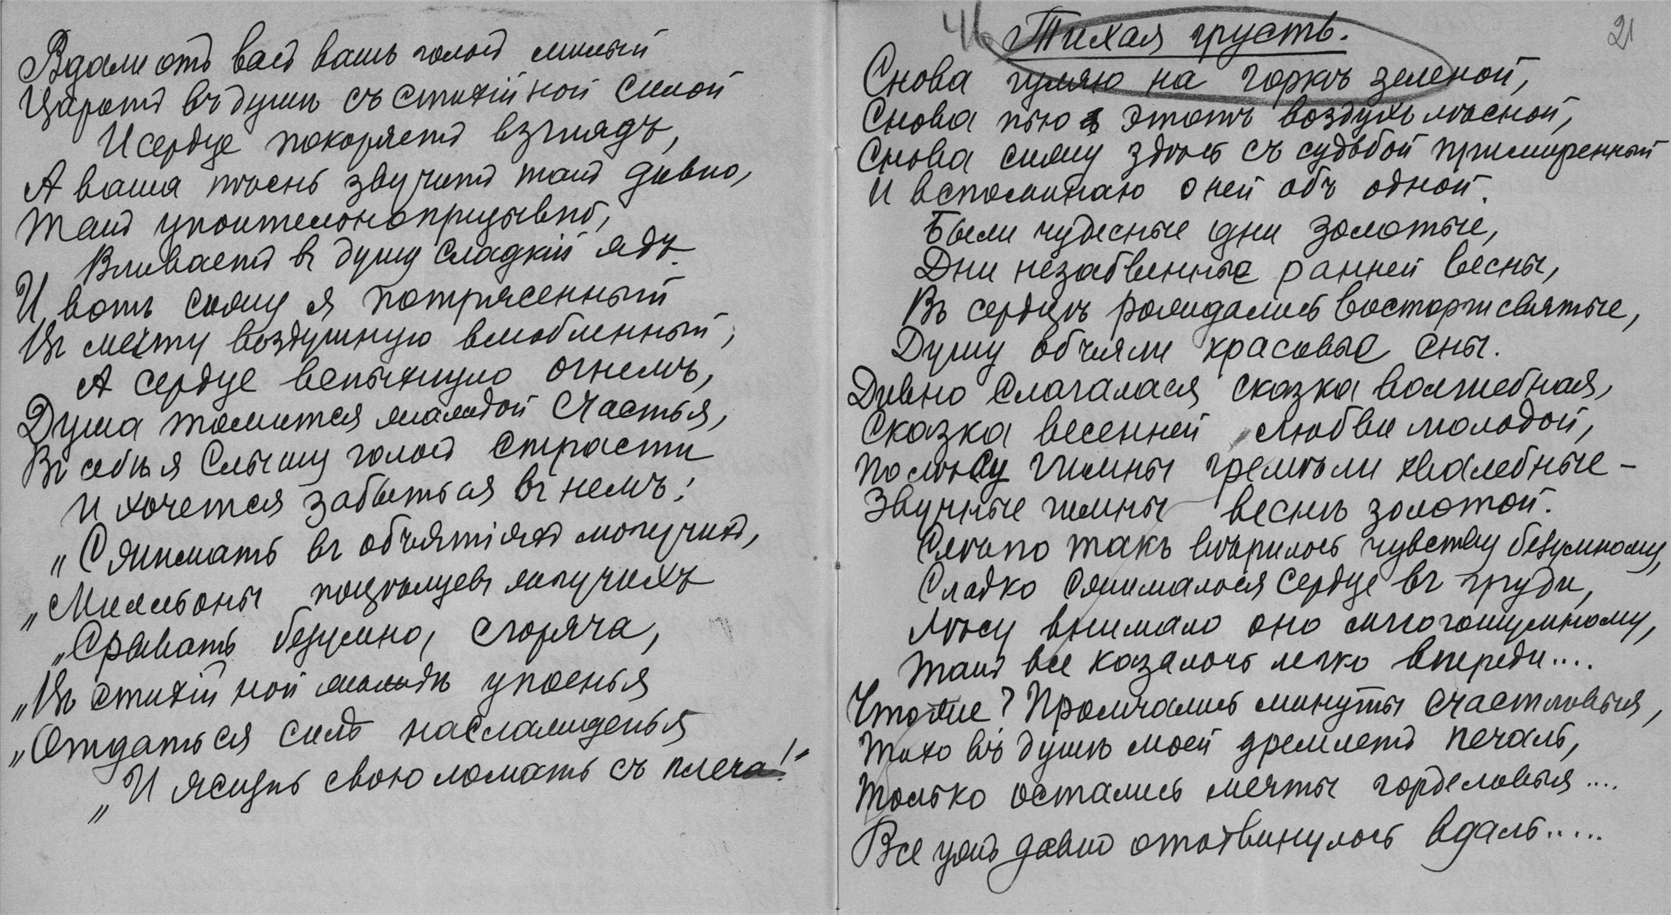 Вдали отъ васъ вашъ голосъ милый
Царитъ въ душѣ съ стихійной силой
И сердце покоряетъ взглядъ,
А ваша пѣснь звучитъ такъ дивно,
Такъ упоительнопризывно,
Вливаетъ въ душу сладкій ядъ.
И вотъ сижу я потрясенный
Въ мечту воздушную влюбленный,
А сердце вспыхнуло огнемъ,
Душа томится жаждой счастья,
Въ себѣ я слышу голосъ страсти
И хочется забыться въ немъ:
„Сжимать въ объятіяхъ могучихъ,
„Мильоны поцѣлуевъ жгучихъ
„Срывать безумно, сгоряча,
„Въ стихійной жаждѣ упоенья
„Отдаться силѣ наслажденья
„И жизнь свою ломать съ плеча!"
46
21
Тихая грусть.
Снова гуляю на горкѣ зеленой,
Снова пью этотъ воздухъ лѣсной,
Снова сижу здѣсь съ судьбой примиренный
И вспоминаю о ней объ одной.
Были чудесные дни золотые,
Дни незабвенные ранней весны,
Въ сердцѣ рождались восторги святые,
Душу объяли красивые сны.
Дивно слагалася сказка волшебная,
Сказка весенней любви молодой,
По лѣсу гимны гремѣли хвалебные –
Звучные гимны веснѣ золотой.
Слѣпо такъ вѣрилось чувству безумному,
Сладко сжималося сердце въ груди,
Лѣсу внимало оно многошумному,
Такъ все казалось легко впереди....
Чтоже? Промчались минуты счастливыя,
Тихо въ душѣ моей дремлетъ печаль,
Только остались мечты горделивыя....
Все ужъ давно отодвинулось вдаль.....